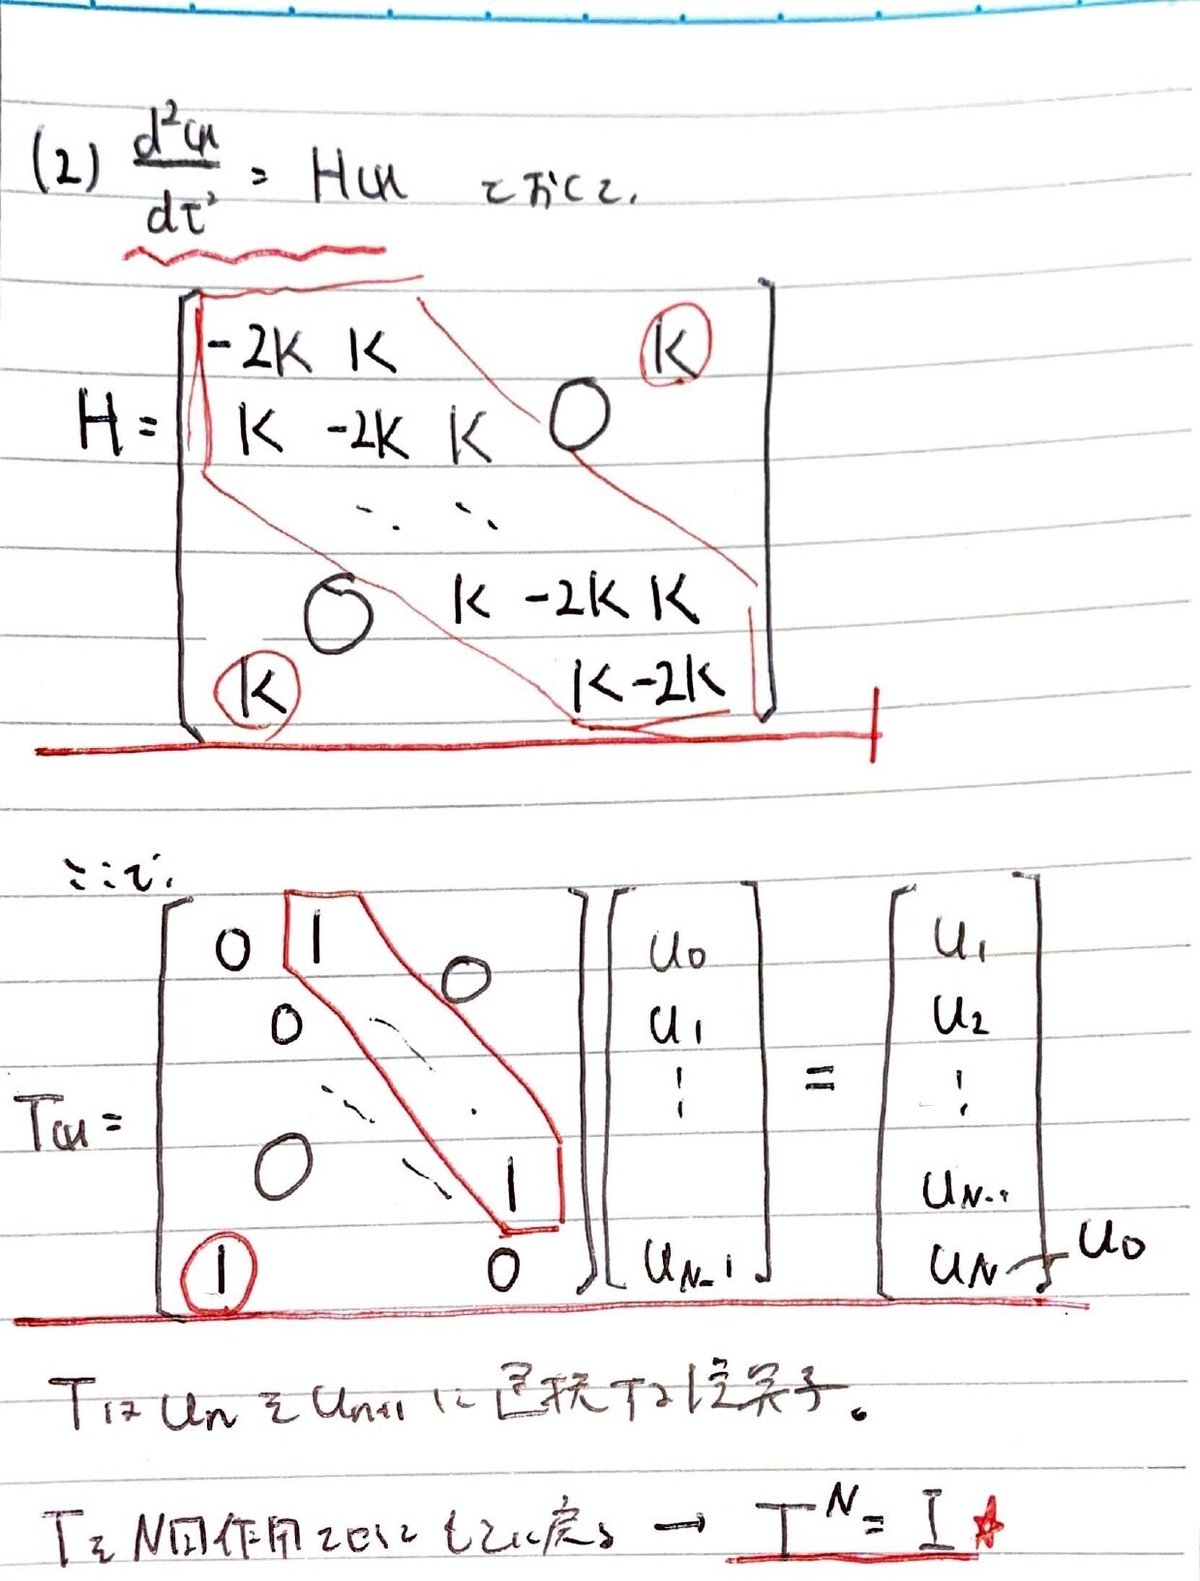 (2) d²u/dτ² = Hu とおくと,
H = [
-2K K O K
K -2K K
⋱ ⋱
O K -2K K
K K -2K
]
ここで,
Tu = [
0 1 O
0 ⋱
O ⋱ 1
1 0
] [
u₀
u₁
⋮
u_{N-1}
] = [
u₁
u₂
⋮
u_{N-1}
u_N → u₀
]
Tは uₙ を uₙ₊₁ に置換する演算子。
TをN回作用させると もとに戻る → T^N = I ☆